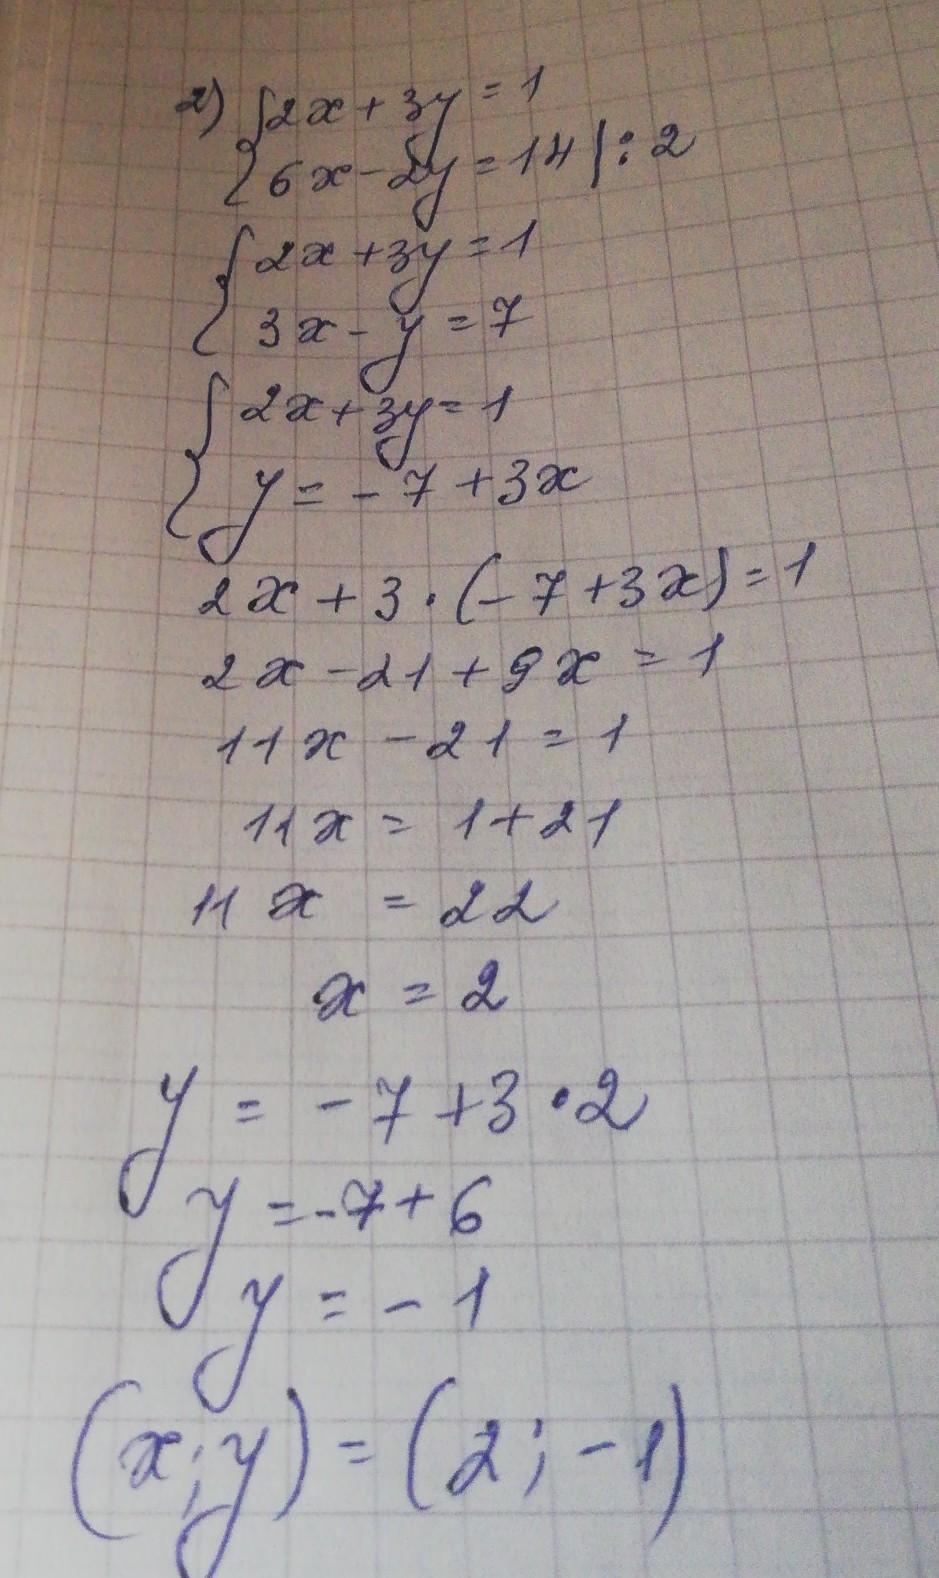 2) {2x + 3y = 1
{6x - 2y = 14 | : 2
{2x + 3y = 1
{3x - y = 7
{2x + 3y = 1
{y = - 7 + 3x
2x + 3 · (- 7 + 3x) = 1
2x - 21 + 9x = 1
11x - 21 = 1
11x = 1 + 21
11x = 22
x = 2
y = - 7 + 3 · 2
y = - 7 + 6
y = - 1
(x; y) = (2; - 1)